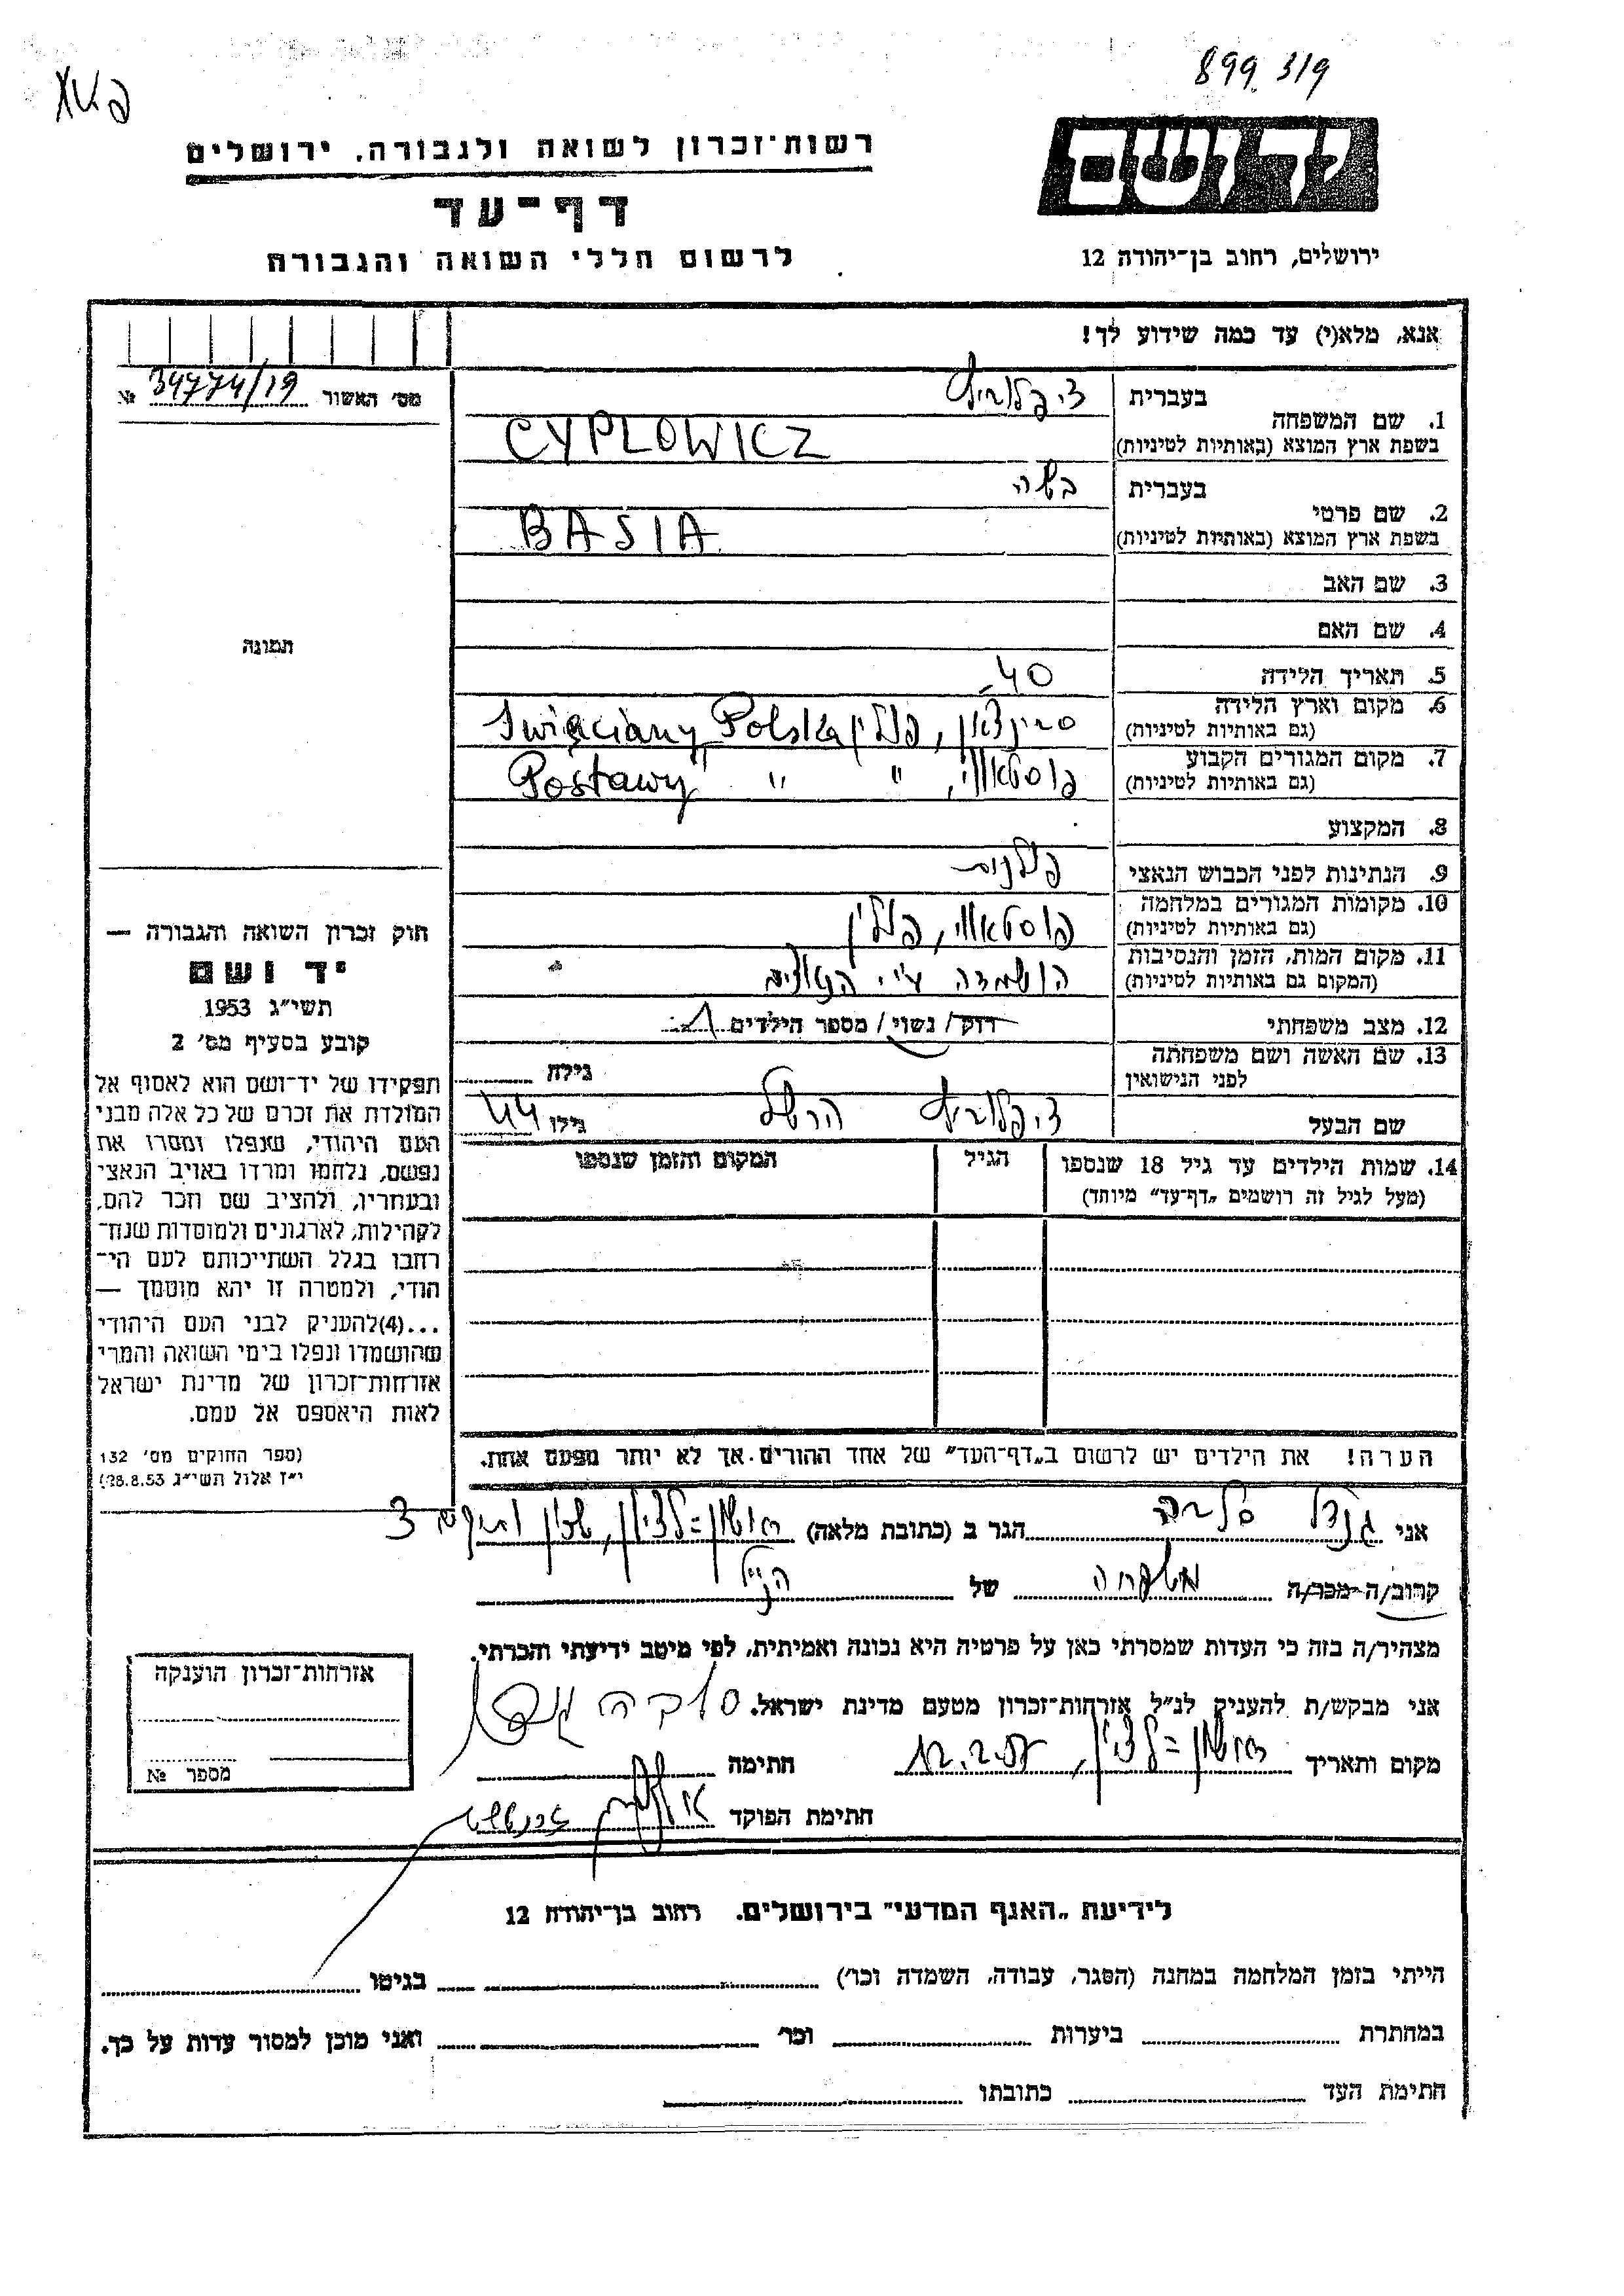 899 319
רשות־זכרון לשואה ולגבורה, ירושלים
יד ושם
דף־עד
לרשום חללי השואה והגבורה
ירושלים, רחוב בן־יהודה 12
אנא, מלא(י) עד כמה שידוע לך!
מס׳ האשור 34774/19 №
בעברית ציפלוביץ
1. שם המשפחה
בשפת ארץ המוצא (באותיות לטיניות) CYPLOWICZ
בעברית בשה
2. שם פרטי
בשפת ארץ המוצא (באותיות לטיניות) BASIA
3. שם האב
4. שם האם
תמונה
5. תאריך הלידה 40
6. מקום וארץ הלידה
(גם באותיות לטיניות) סוינציאן, פולין Swięciany Polska
7. מקום המגורים הקבוע
(גם באותיות לטיניות) פוסטאווי, " Postawy "
8. המקצוע
9. הנתינות לפני הכבוש הנאצי פולנית
10. מקומות המגורים במלחמה
(גם באותיות לטיניות) פוסטאווי, פולין
11. מקום המות, הזמן והנסיבות
(המקום גם באותיות לטיניות) הושמדה ע"י הנאצים
12. מצב משפחתי רוק/ נשוי/ מספר הילדים 1
13. שם האשה ושם משפחתה
לפני הנישואין גילה
שם הבעל ציפלוביץ הרשל גילו 44
14. שמות הילדים עד גיל 18 שנספו הגיל המקום והזמן שנספו
(מעל לגיל זה רושמים „דף־עד” מיוחד)
חוק זכרון השואה והגבורה —
יד ושם
תשי״ג 1953
קובע בסעיף מס׳ 2
תפקידו של יד־ושם הוא לאסוף אל
המולדת את זכרם של כל אלה מבני
העם היהודי, שנפלו ומסרו את
נפשם, נלחמו ומרדו באויב הנאצי
ובעוזריו, ולהציב שם וזכר להם,
לקהילות, לארגונים ולמוסדות שנח־
רבו בגלל השתייכותם לעם הי־
הודי, ולמטרה זו יהא מוסמך —
...(4)להעניק לבני העם היהודי
שהושמדו ונפלו בימי השואה והמרי
אזרחות־זכרון של מדינת ישראל
לאות היאספם אל עמם.
(ספר החוקים מס׳ 132
י״ז אלול תשי״ג 28.8.53)
הערה! את הילדים יש לרשום ב„דף־העד” של אחד ההורים. אך לא יותר מפעם אחת.
אני הגר ב (כתובת מלאה) ראשון־לציון, 3
קרוב/ה־מכר/ה משפחה של הנ"ל
מצהיר/ה בזה כי העדות שמסרתי כאן על פרטיה היא נכונה ואמיתית, לפי מיטב ידיעתי והכרתי.
אני מבקש/ת להעניק לנ״ל אזרחות־זכרון מטעם מדינת ישראל.
מקום ותאריך ראשון־לציון, 12.2.57 חתימה
חתימת הפוקד
אזרחות־זכרון הוענקה
מספר №
לידיעת „האגף המדעי” בירושלים. רחוב בן־יהודה 12
הייתי בזמן המלחמה במחנה (הסגר, עבודה, השמדה וכו׳) בגיטו
במחתרת ביערות וכו׳ ואני מוכן למסור עדות על כך.
חתימת העד כתובתו